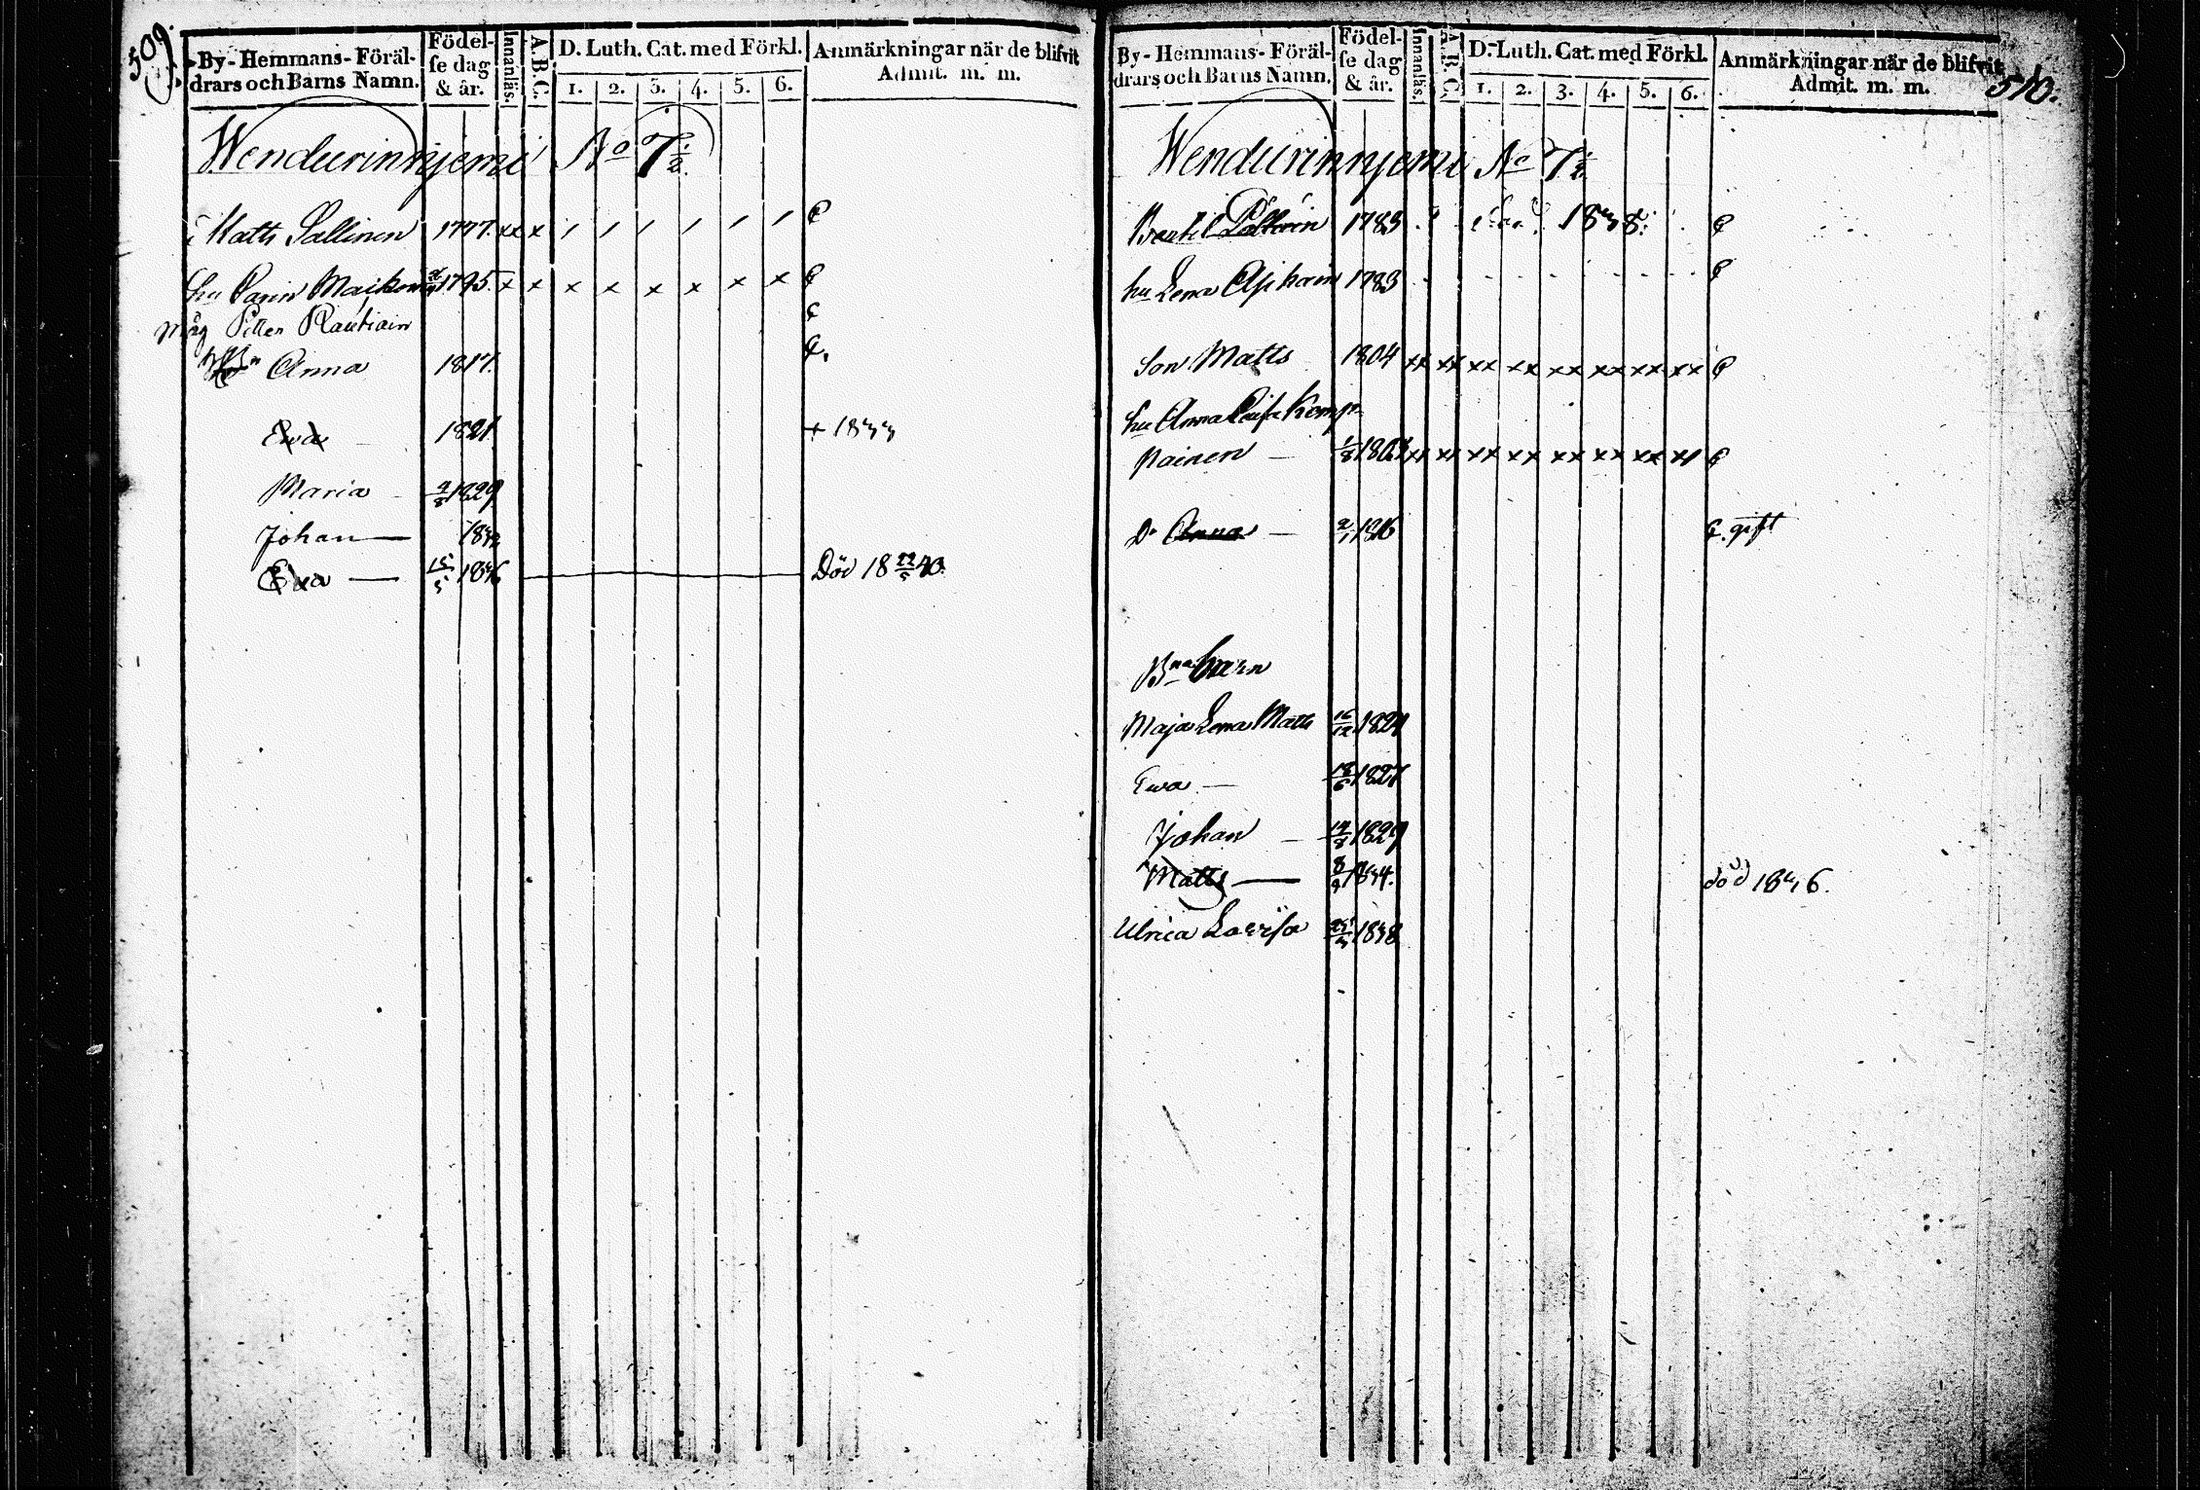 509.
By-Hemmans-Föräl-
drars och Barns Namn.
Födel-
se dag
& år.
Innanläs.
A.B.C.
D. Luth. Cat. med Förkl.
1. 2. 3. 4. 5. 6.
Anmärkningar när de blifvit
Admit. m. m.
Wendurinnjemi No 7 1/2.
Matts Sallinen 1777. xx x / / / / / /
hu Carin 1795. x x x x x x x x
Måg Petter Rautiain
Anna 1817.
Ewa 1821. + 1833
Maria 1829
Johan — 1832
Ewa — 15/5 1836 Död 18 22/5 40.
510.
By-Hemmans-Föräl-
drars och Barns Namn.
Födel-
se dag
& år.
Innanläs.
A.B.C.
D. Luth. Cat. med Förkl.
1. 2. 3. 4. 5. 6.
Anmärkningar när de blifvit
Admit. m. m.
Wendurinnjemi No 7 1/2.
Bertil 1783 1838.
hu Lena 1783
Son Matts 1804 xx xx xx xx xx xx xx xx
hu Anna Komp
painen — xx xx xx xx xx xx xx
Dr Anna — 1816 gift
Bna barn
Maja Lena Matts 16/12 1824
Ewa — 18/6 1827
Johan — 14/8 1829
Matts — 8/9 1834. död 1836.
Ulrica Lovisa 1838